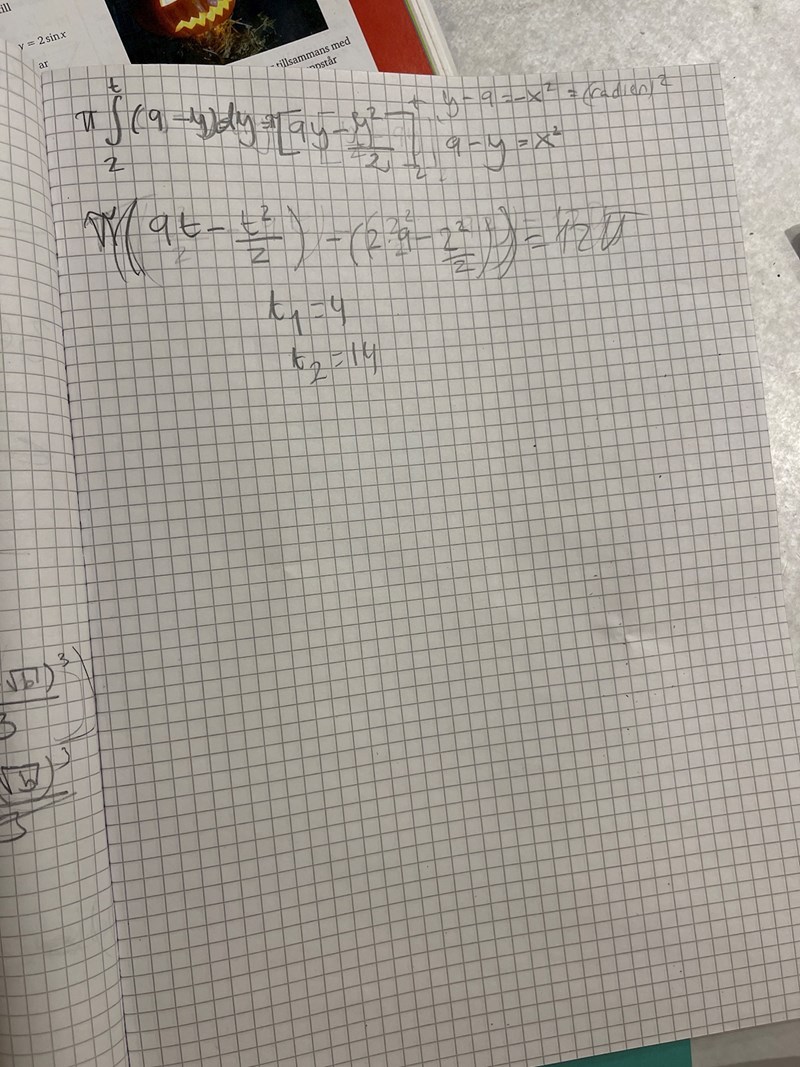 ill
y = 2 sin x
ar
tillsammans med
π∫₂ᵗ(9-y)dy = π[9y - y²/2]₂ᵗ
y-9 = -x² = (radien)²
9-y = x²
π((9t - t²/2) - (2·9 - 2²/2)) = 12π
t₁ = 4
t₂ = 14
√b)³
3
√b)³
3